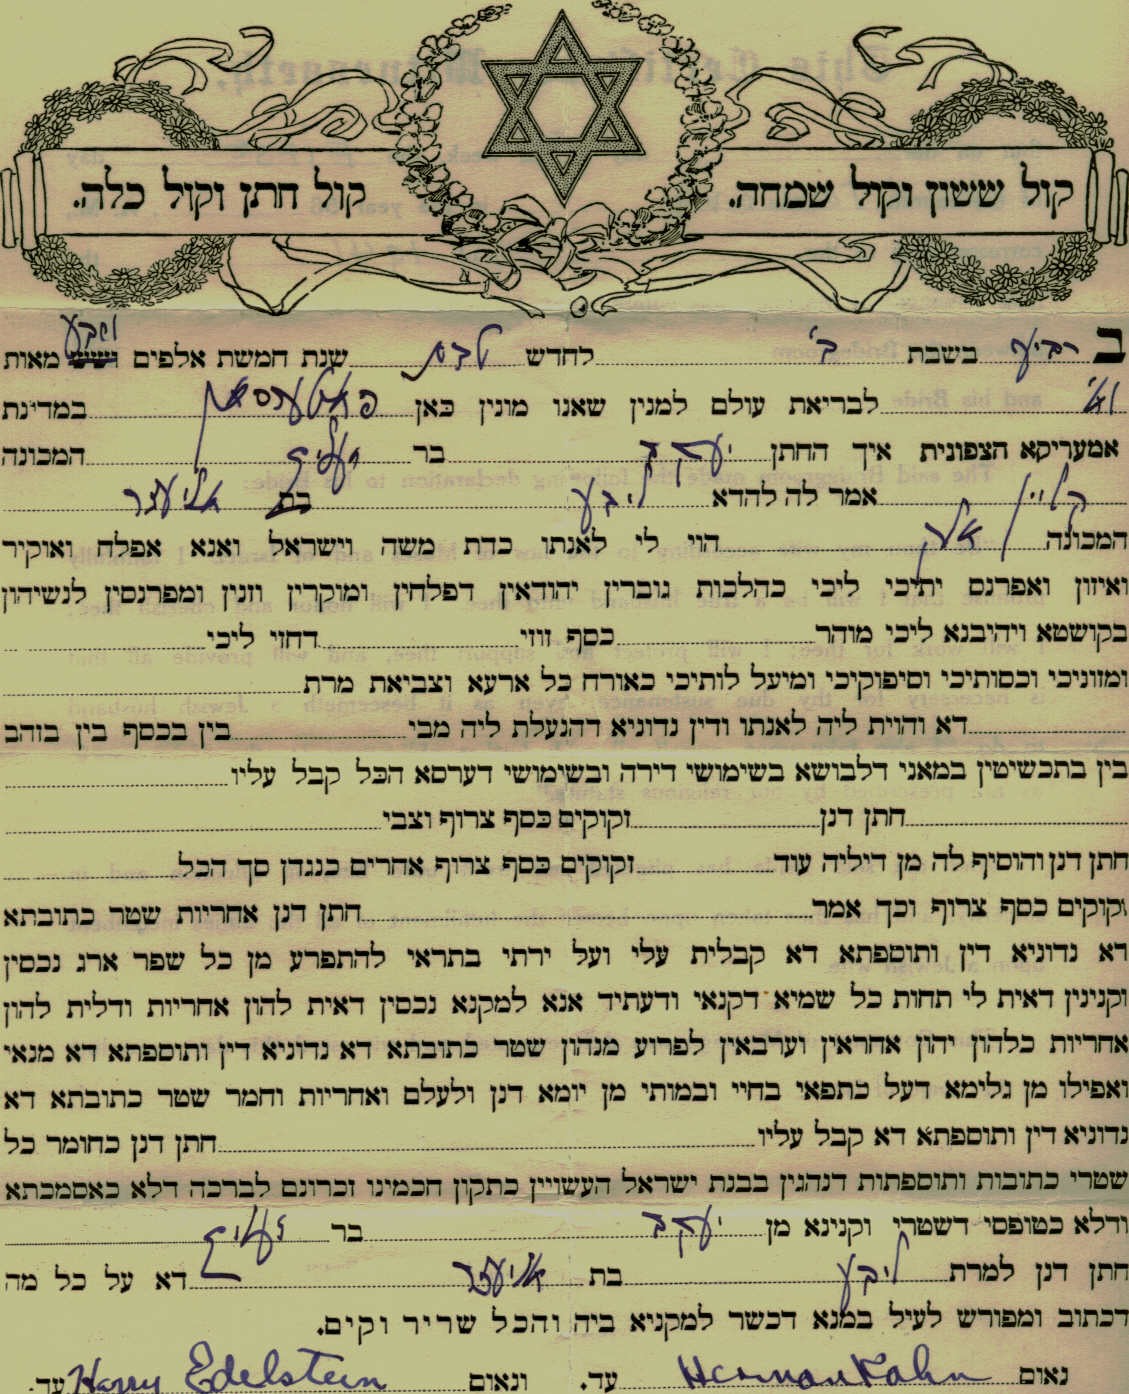 קול ששון וקול שמחה. קול חתן וקול כלה.
ב רביעי בשבת ב' לחדש טבת שנת חמשת אלפים ושש ושבע מאות
וא' לבריאת עולם למנין שאנו מונין כאן פאטערסאן במדינת
אמעריקא הצפונית איך החתן יעקב בר זעליג המכונה
קליין אמר לה להדא ליבע בת אליעזר
המכונה הוי לי לאנתו כדת משה וישראל ואנא אפלח ואוקיר
ואיזון ואפרנס יתיכי ליכי כהלכות גוברין יהודאין דפלחין ומוקרין וזנין ומפרנסין לנשיהון
בקושטא ויהיבנא ליכי מוהר כסף זוזי דחזי ליכי
ומזוניכי וכסותיכי וסיפוקיכי ומיעל לותיכי כאורח כל ארעא וצביאת מרת
דא והוית ליה לאנתו ודין נדוניא דהנעלת ליה מבי בין בכסף בין בזהב
בין בתכשיטין במאני דלבושא בשימושי דירה ובשימושי דערסא הכל קבל עליו
חתן דנן זקוקים כסף צרוף וצבי
חתן דנן והוסיף לה מן דיליה עוד זקוקים כסף צרוף אחרים כנגדן סך הכל
זקוקים כסף צרוף וכך אמר חתן דנן אחריות שטר כתובתא
דא נדוניא דין ותוספתא דא קבלית עלי ועל ירתי בתראי להתפרע מן כל שפר ארג נכסין
וקנינין דאית לי תחות כל שמיא דקנאי ודעתיד אנא למקנא נכסין דאית להון אחריות ודלית להון
אחריות כלהון יהון אחראין וערבאין לפרוע מנהון שטר כתובתא דא נדוניא דין ותוספתא דא מנאי
ואפילו מן גלימא דעל כתפאי בחיי ובמותי מן יומא דנן ולעלם ואחריות וחמר שטר כתובתא דא
נדוניא דין ותוספתא דא קבל עליו חתן דנן כחומר כל
שטרי כתובות ותוספתות דנהגין בבנת ישראל העשויין כתקון חכמינו זכרונם לברכה דלא כאסמכתא
ודלא כטופסי דשטרי וקנינא מן יעקב בר זעליג
חתן דנן למרת ליבע בת אליעזר דא על כל מה
דכתוב ומפורש לעיל במנא דכשר למקניא ביה והכל שריר וקים.
נאום Herman Kahn עד. ונאום Harry Edelstein עד.